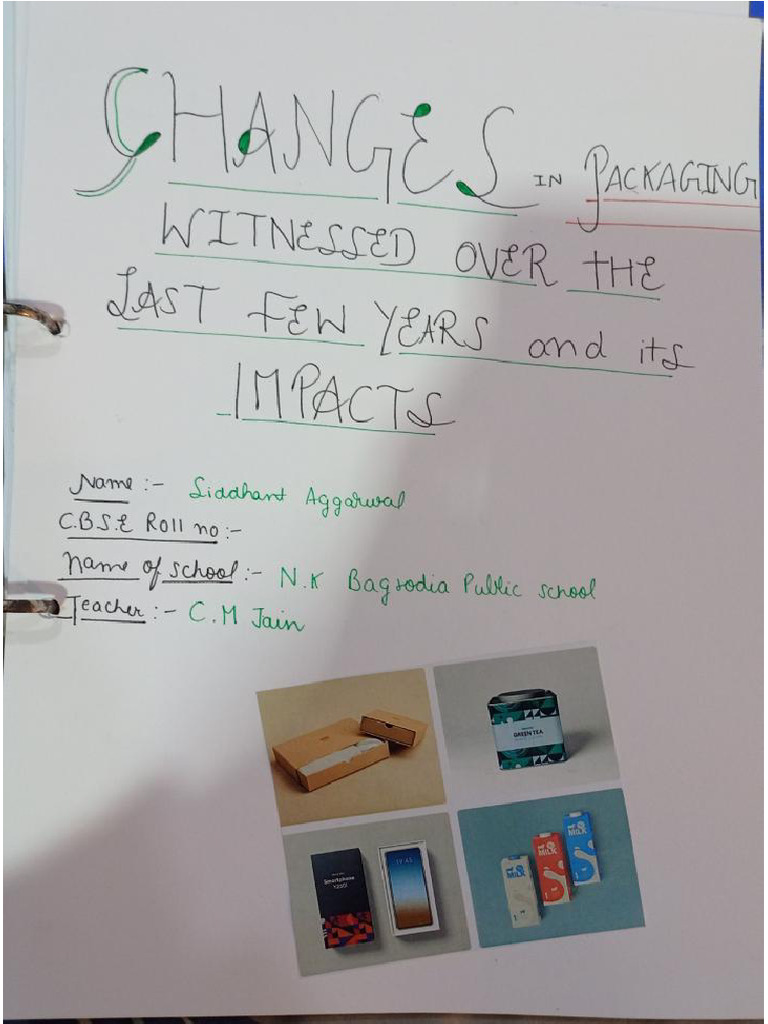 CHANGES IN PACKAGING
WITNESSED OVER THE
LAST FEW YEARS and its
IMPACTS
Name :- Siddhant Aggarwal
C.B.S.E Roll no :-
Name of school :- N.K Bagrodia Public school
Teacher :- C.M Jain
GREEN TEA
Smartphone
MILK
MILK
MILK